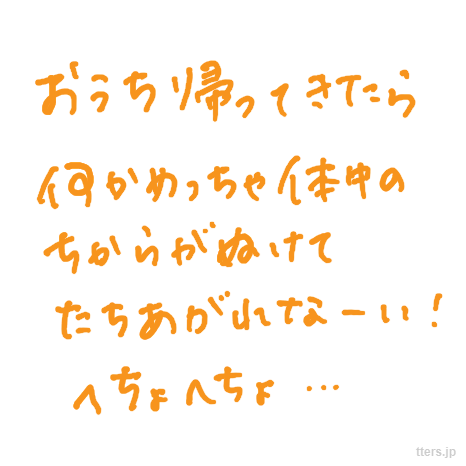 おうち帰ってきたら
何かめっちゃ体中の
ちからがぬけて
たちあがれなーい!
へちょへちょ…
tters.jp